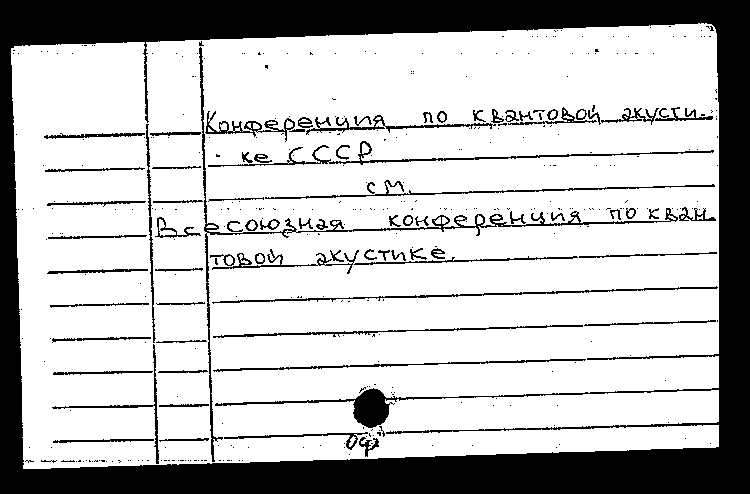 Конференция по квантовой акусти-
ке СССР
см.
Всесоюзная конференция по кван
товой акустике.
оф